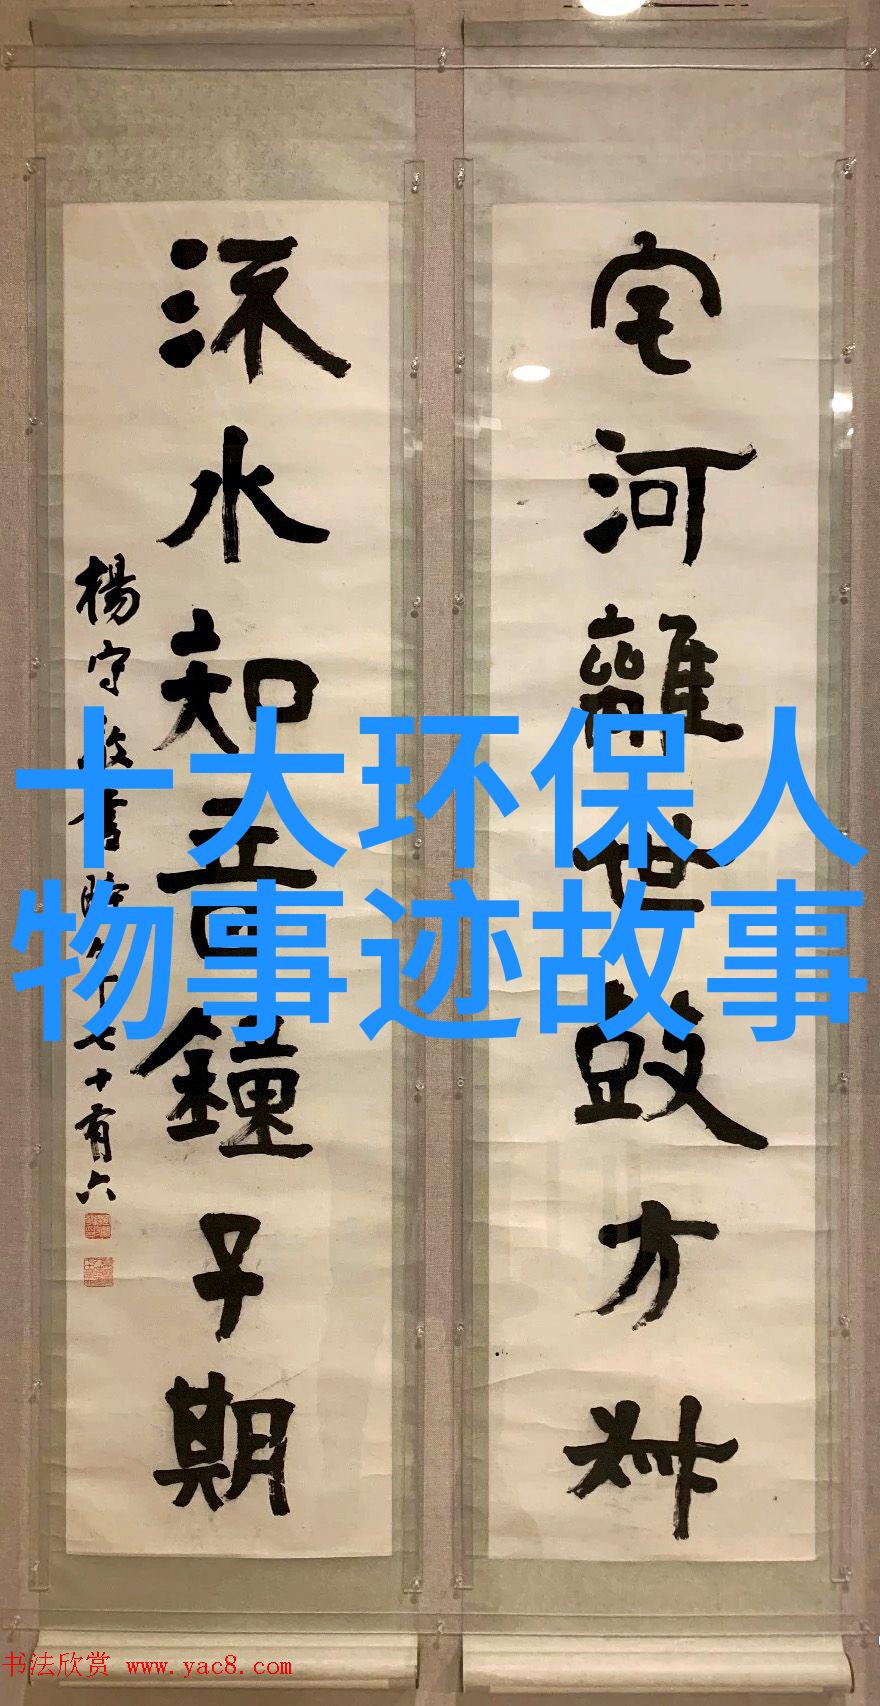 宅河離世鼓方叔
流水知音鐘子期
楊守敬書時年七十有六
十大环保人
物事迹故事
书法欣赏 www.yac8.com